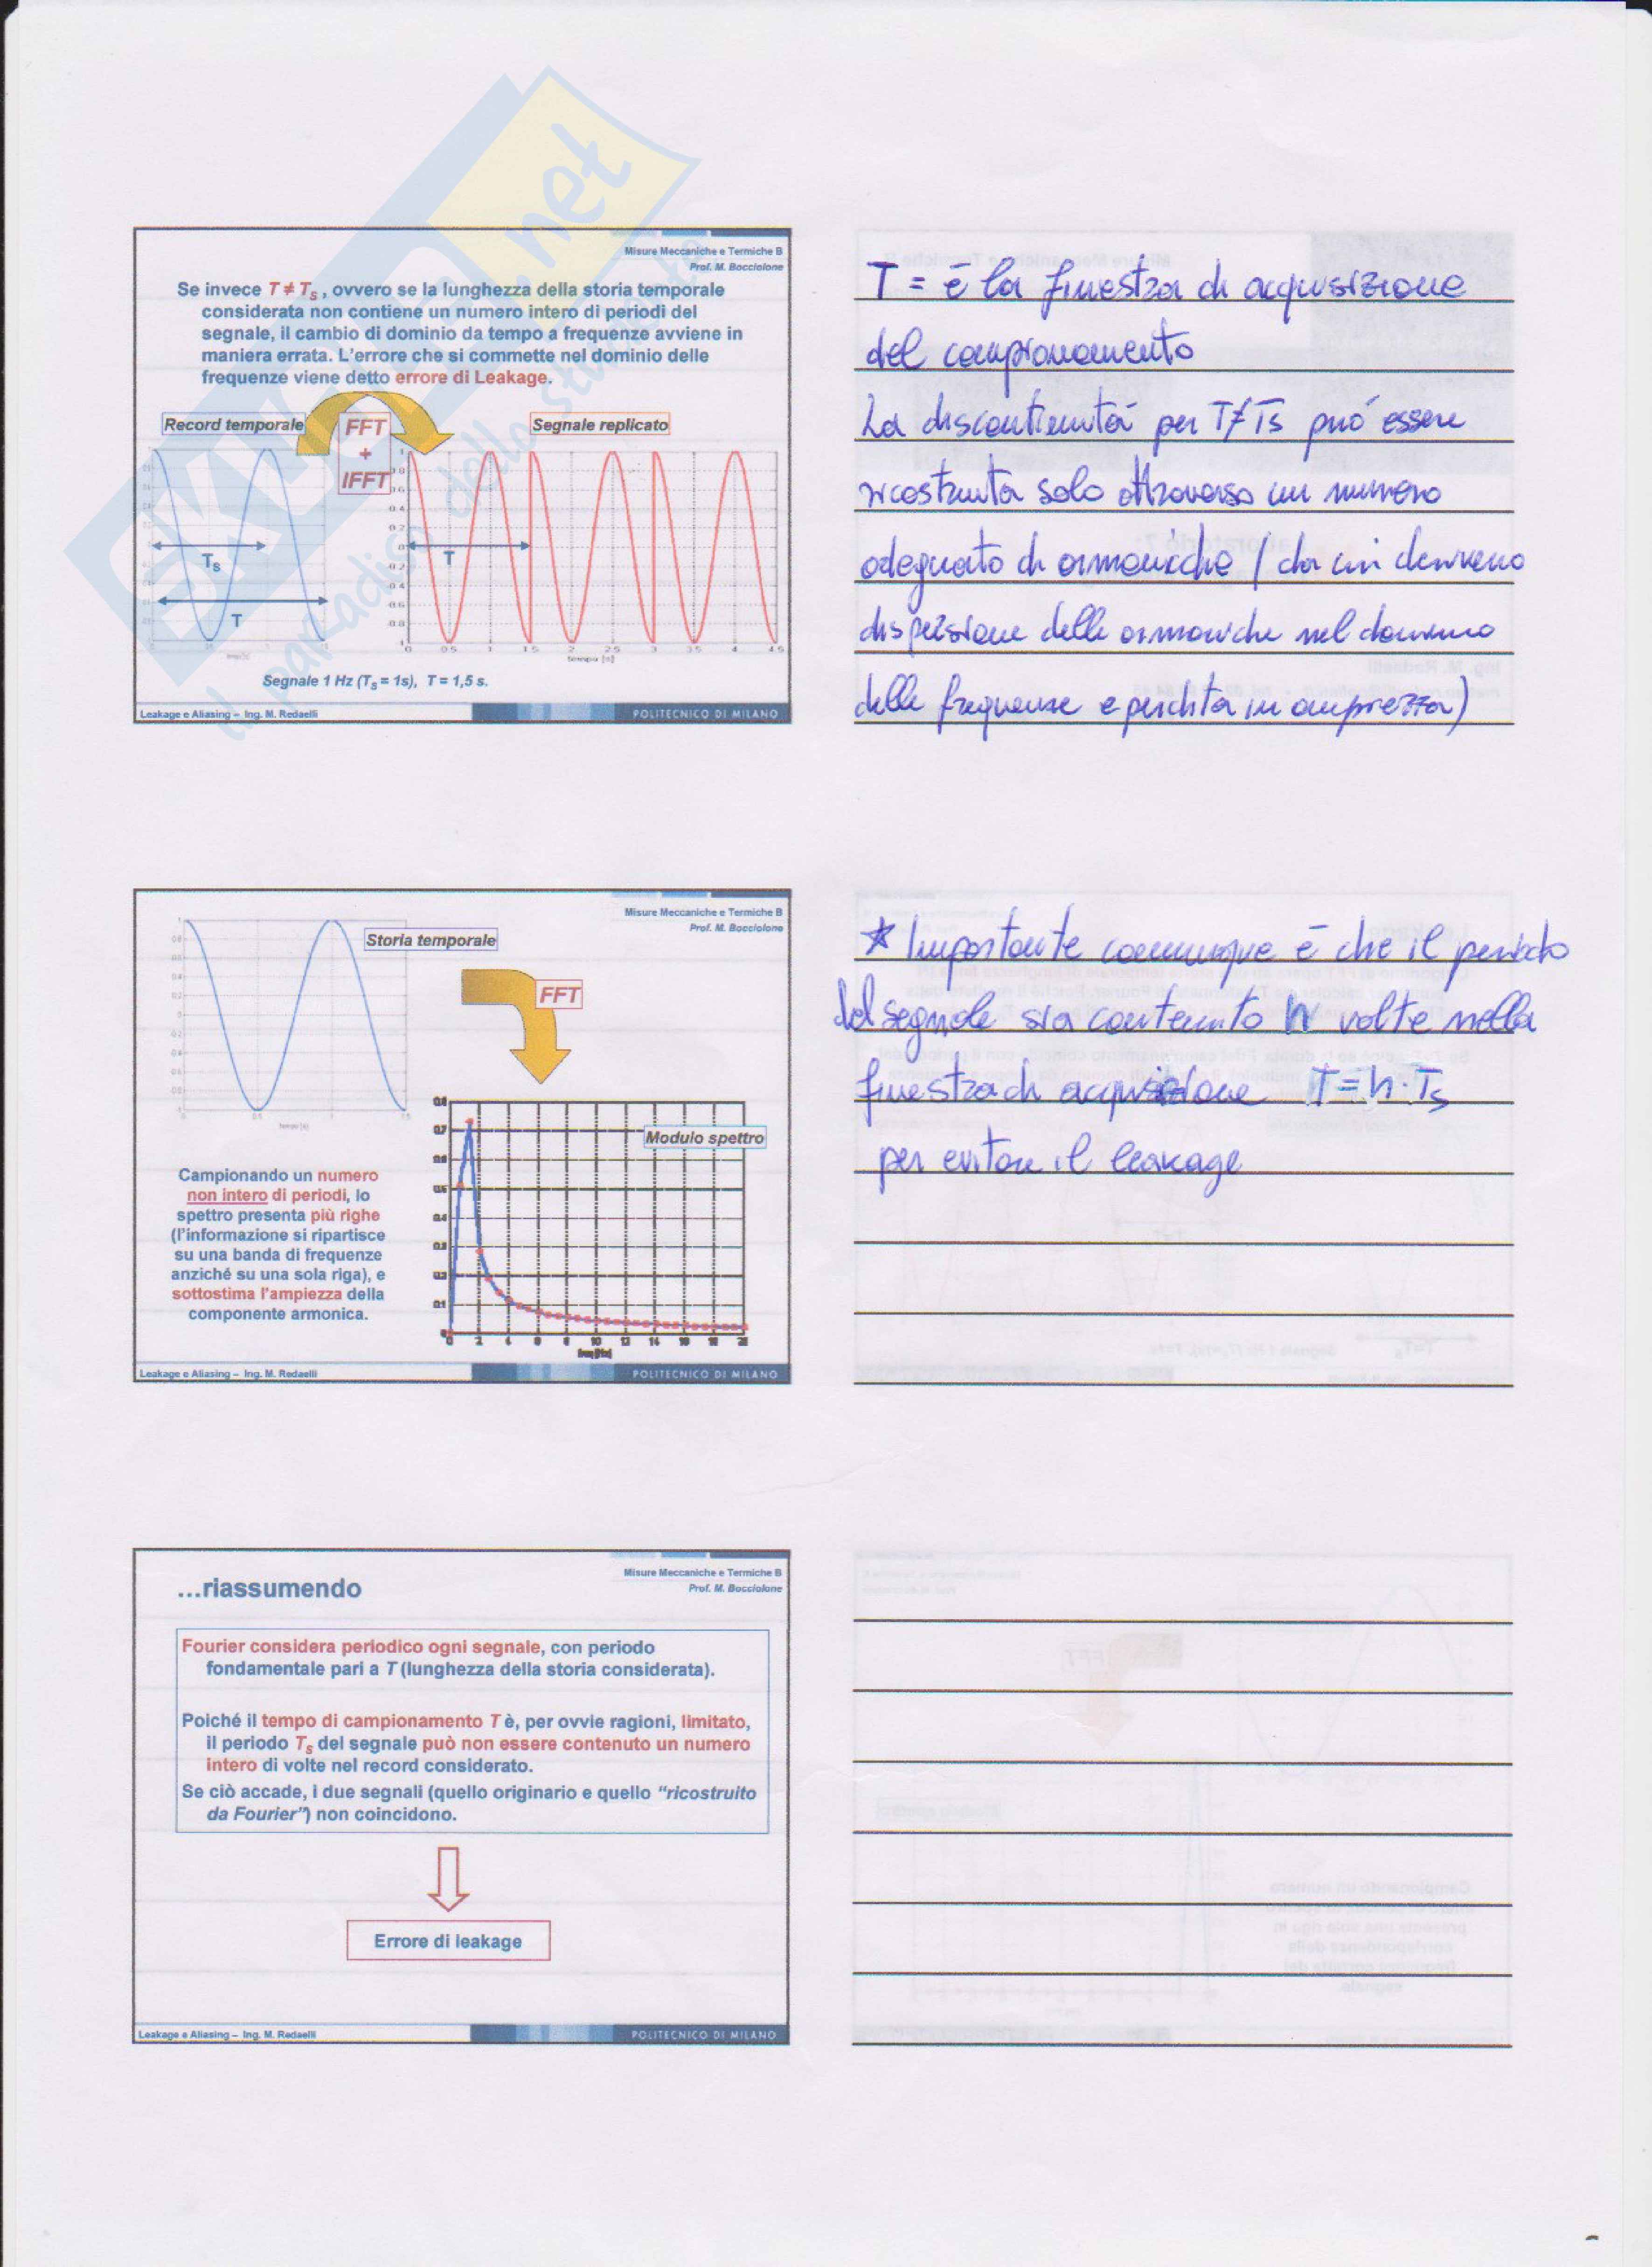 SKUOLA.net
il paradiso dello studente
Misure Meccaniche e Termiche B
Prof. M. Bocciolone
Se invece T ≠ Ts , ovvero se la lunghezza della storia temporale
considerata non contiene un numero intero di periodi del
segnale, il cambio di dominio da tempo a frequenze avviene in
maniera errata. L'errore che si commette nel dominio delle
frequenze viene detto errore di Leakage.
Record temporale
FFT
+
IFFT
Segnale replicato
Ts
T
T
0 0.5 1 1.5 2 2.5 3 3.5 4 4.5
tempo [s]
Segnale 1 Hz (Ts = 1s), T = 1,5 s.
Leakage e Aliasing – Ing. M. Redaelli
POLITECNICO DI MILANO
T = è la finestra di acquisizione
del campionamento
La discontinuità per T≠Ts può essere
ricostruita solo attraverso un numero
adeguato di armoniche (da cui derivano
dispersione delle armoniche nel dominio
delle frequenze e perdita in ampiezza)
Misure Meccaniche e Termiche B
Prof. M. Bocciolone
Storia temporale
FFT
Modulo spettro
Campionando un numero
non intero di periodi, lo
spettro presenta più righe
(l'informazione si ripartisce
su una banda di frequenze
anziché su una sola riga), e
sottostima l'ampiezza della
componente armonica.
0 2 4 6 8 10 12 14 16 18 20
freq [Hz]
Leakage e Aliasing – Ing. M. Redaelli
POLITECNICO DI MILANO
* Importante comunque è che il periodo
del segnale sia contenuto n volte nella
finestra di acquisizione T = n · Ts
per evitare il leakage
Misure Meccaniche e Termiche B
Prof. M. Bocciolone
...riassumendo
Fourier considera periodico ogni segnale, con periodo
fondamentale pari a T (lunghezza della storia considerata).
Poiché il tempo di campionamento T è, per ovvie ragioni, limitato,
il periodo Ts del segnale può non essere contenuto un numero
intero di volte nel record considerato.
Se ciò accade, i due segnali (quello originario e quello "ricostruito
da Fourier") non coincidono.
Errore di leakage
Leakage e Aliasing – Ing. M. Redaelli
POLITECNICO DI MILANO